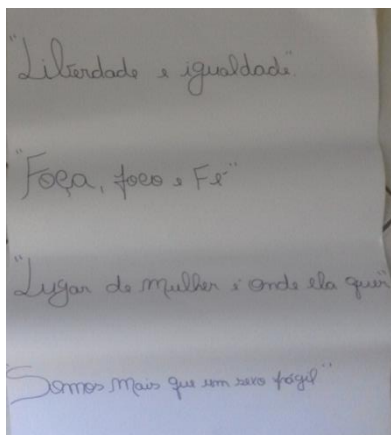 "Liberdade e igualdade"
"Foça, foco e Fé"
"Lugar de mulher é onde ela quer"
"Somos mais que um sexo frágil"